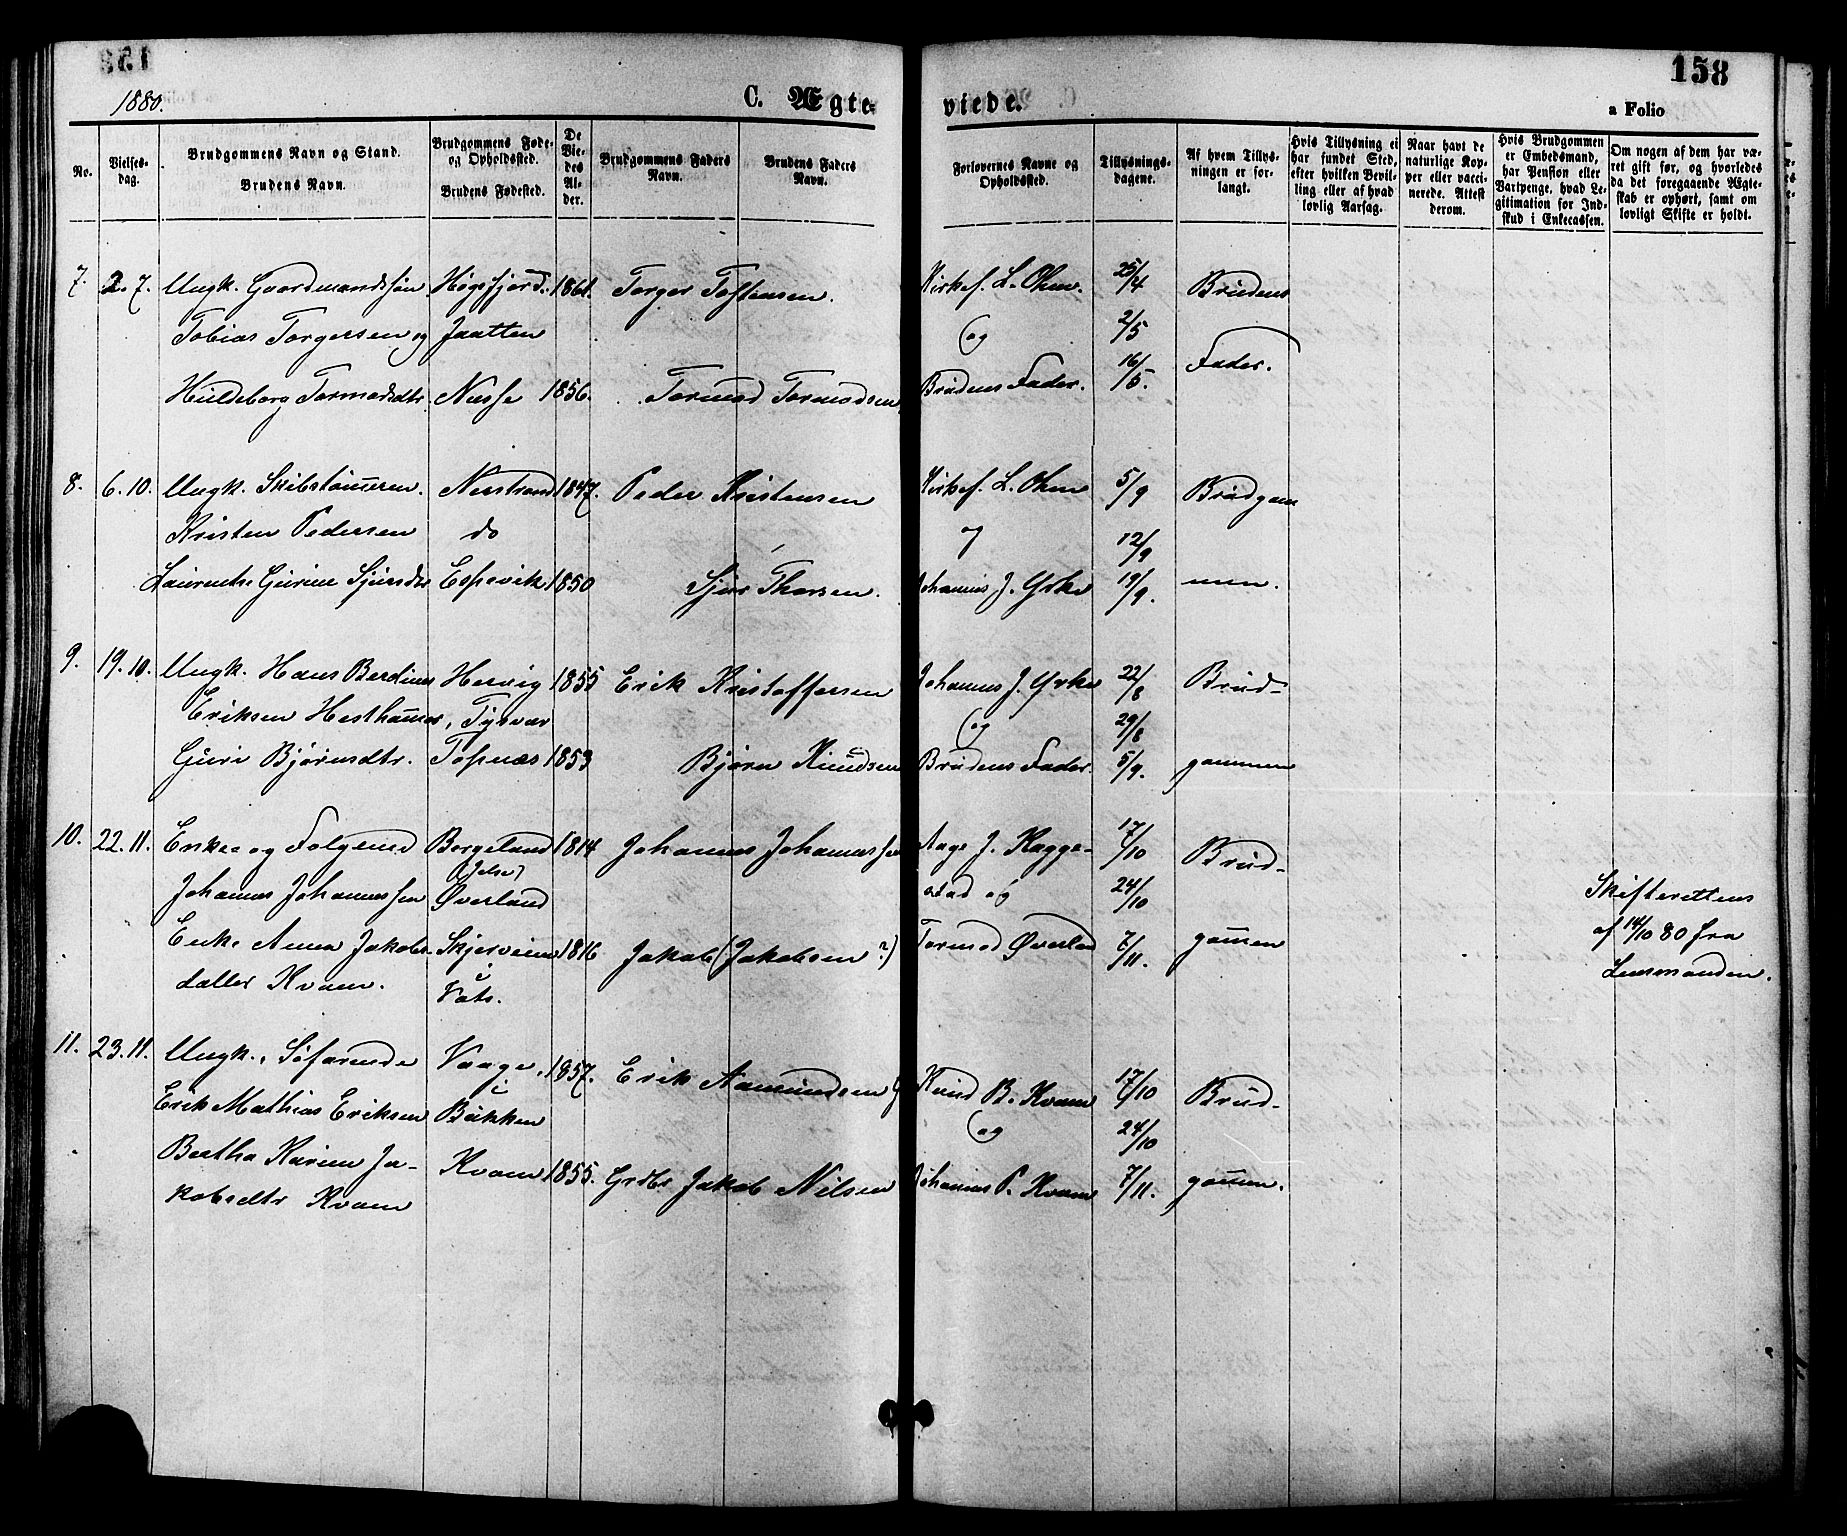 158
1880.
C. Ægteviede.
a Folio
No.
Vielsesdag.
Brudgommens Navn og Stand.
Brudens Navn.
Brudgommens Føde- og Opholdssted.
Brudens Fødested.
De Viedes Alder.
Brudgommens Faders Navn.
Brudens Faders Navn.
Forlovernes Navne og Opholdssted.
Tillysningsdagene.
Af hvem Tillysningen er forlangt.
Hvis Tillysning ei har fundet Sted, efter hvilken Bevilling eller af hvad lovlig Aarsag.
Naar havt de naturlige Kopper eller vaccinerede. Attest derom.
Hvis Brudgommen er Embedsmand, har Pension eller Vartpenge, hvad Legitimation for Indskud i Enkecassen.
Om nogen af dem har været gift før, og hvorledes da det foregaaende Ægteskab er ophørt, samt om lovligt Skifte er holdt.
7. 2.7. Ungk. Gaardmandssøn Høgsfjord. 1861. Torger Tostensen. Kirkes. L. Ohm. 25/4 Brudens
Tobias Torgersen og Jaatten og 2/5
Huldeborg Tormodsdtr. Nesse 1856. Tormod Tormodsen Brudens Fader. 16/5. Fader.
8. 6.10. Ungk. Skibstømmeren. Nerstrand 1847. Peder Kristensen Kirkes. L. Ohm 5/9 Brudgom
Kristen Pedersen do og 12/9
Laurentse Gurine Sjursdtr Espevik 1850 Sjur Thorsen. Johannes J. Yrke 19/9. men.
9. 19.10. Ungk. Hans Berdines Hervig 1855 Erik Kristoffersen Johannes J. Yrke 22/8 Brud-
Eriksen Hesthammer, Tysvær og 29/8
Guri Bjørnsdtr. Topnæs 1853 Bjørn Knudsen Brudens Fader. 5/9. gommen
10. 22.11. Enkem og Folgemd Borgeland 1814 Johannes Johannessen Aage J. Hagge- 17/10 Brud-
(Jelse)
Johannes Johannessen Øverland stad og 24/10 Skifterettens
Enke Anna Jakobs- Skjerveim 1816 Jakob (Jakobsen?) Tormod Øverland 7/11. gommen af 14/10 80 fra
datter Kvam. i Vats. Lensmanden.
11. 23.11. Ungk., Søfarende Vaage, 1857. Erik Aamundsen Knud B. Kvam 17/10 Brud-
i
Erik Mathias Eriksen Bukken og 24/10
Bertha Karine Ja- Kvam 1855. Grdbr Jakob Nilsen Johannes P. Kvam 7/11. gommen.
kobsdtr Kvam